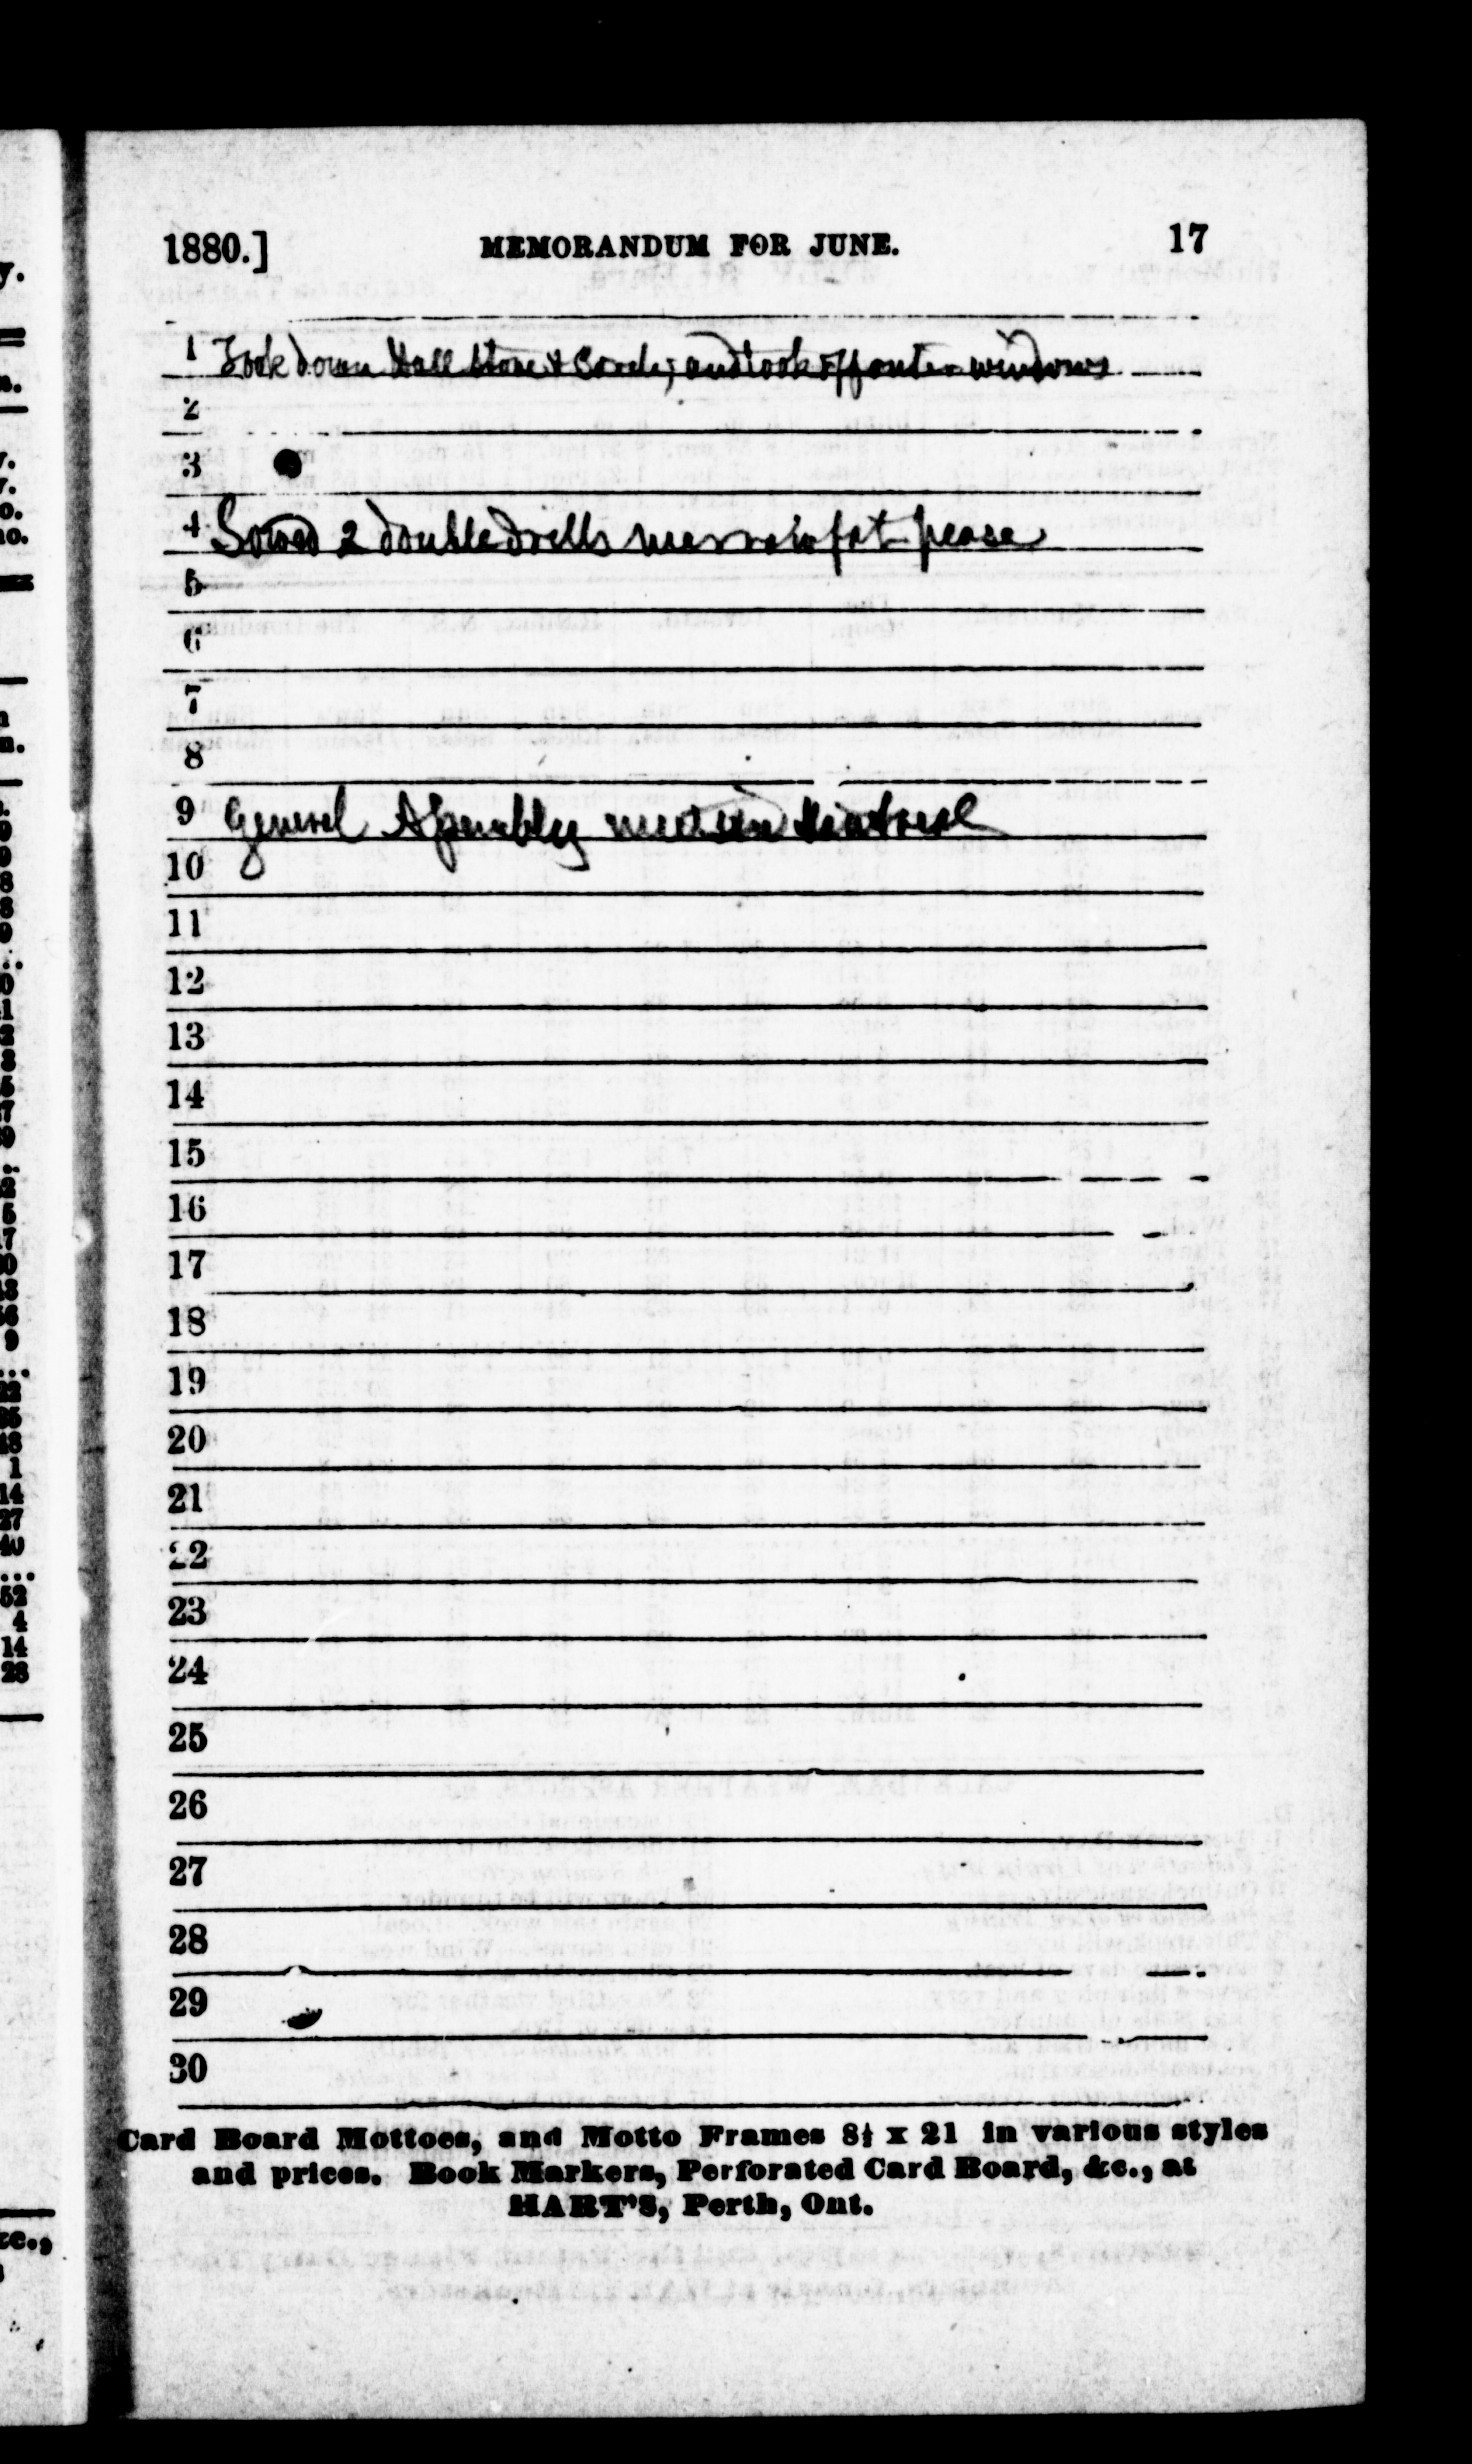 1880.] MEMORANDUM FOR JUNE. 17
1 Took down Hall stove & and took off outer windows
2
3
4 Sowed 2 double drills marrowfat pease
5
6
7
8
9 General Assembly meets in Montreal
10
11
12
13
14
15
16
17
18
19
20
21
22
23
24
25
26
27
28
29
30
Card Board Mottoes, and Motto Frames 8½ x 21 in various styles
and prices. Book Markers, Perforated Card Board, &c., at
HART'S, Perth, Ont.